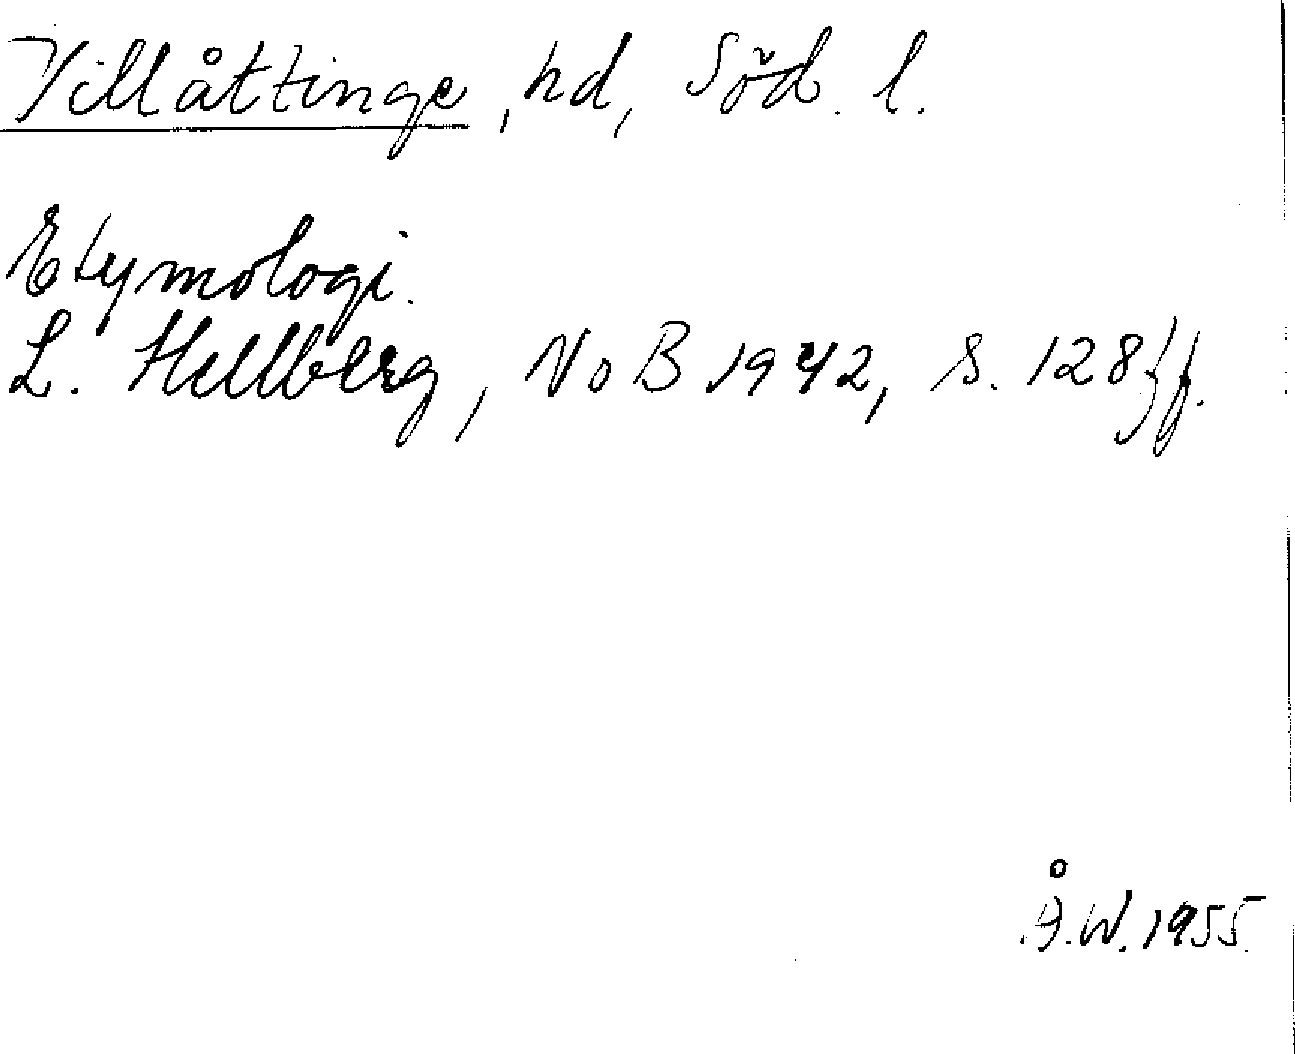 Villåttinge, hd, Söd. l.
Etymologi.
L. Hellberg, NoB 1942, s. 128ff.
Å.W. 1955.